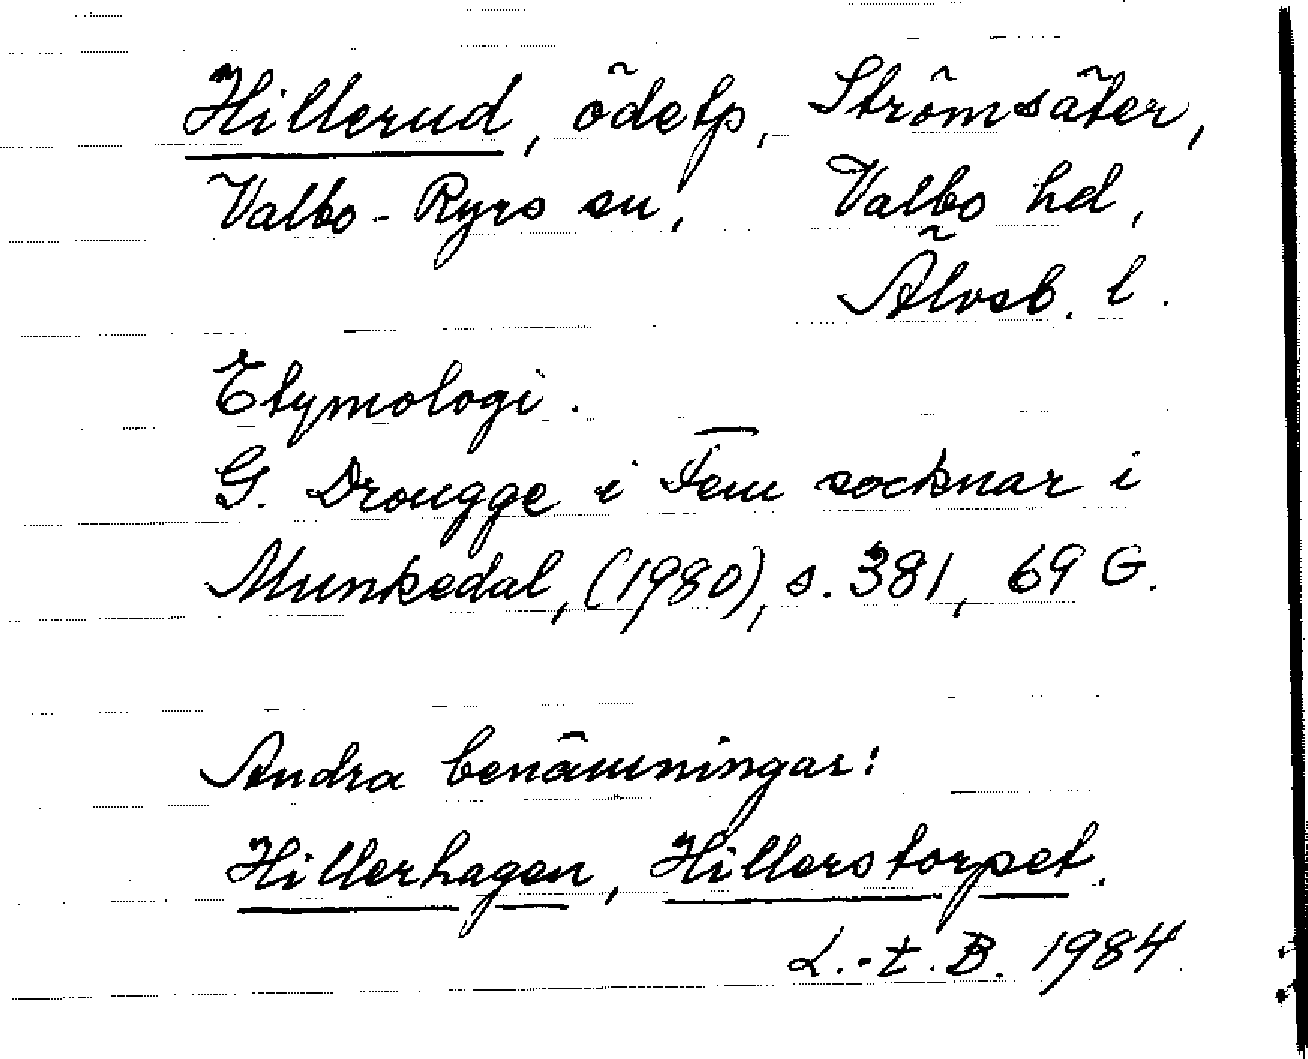 Hillerud, ödetp, Strömsäter,
Valbo-Ryrs sn, Valbo hd,
Älvsb. l.
Etymologi.
G. Drougge i Fem socknar i
Munkedal, (1980), s. 381, 69 G.
Andra benämningar:
Hillerhagen, Hillerstorpet.
L.-t. B. 1984